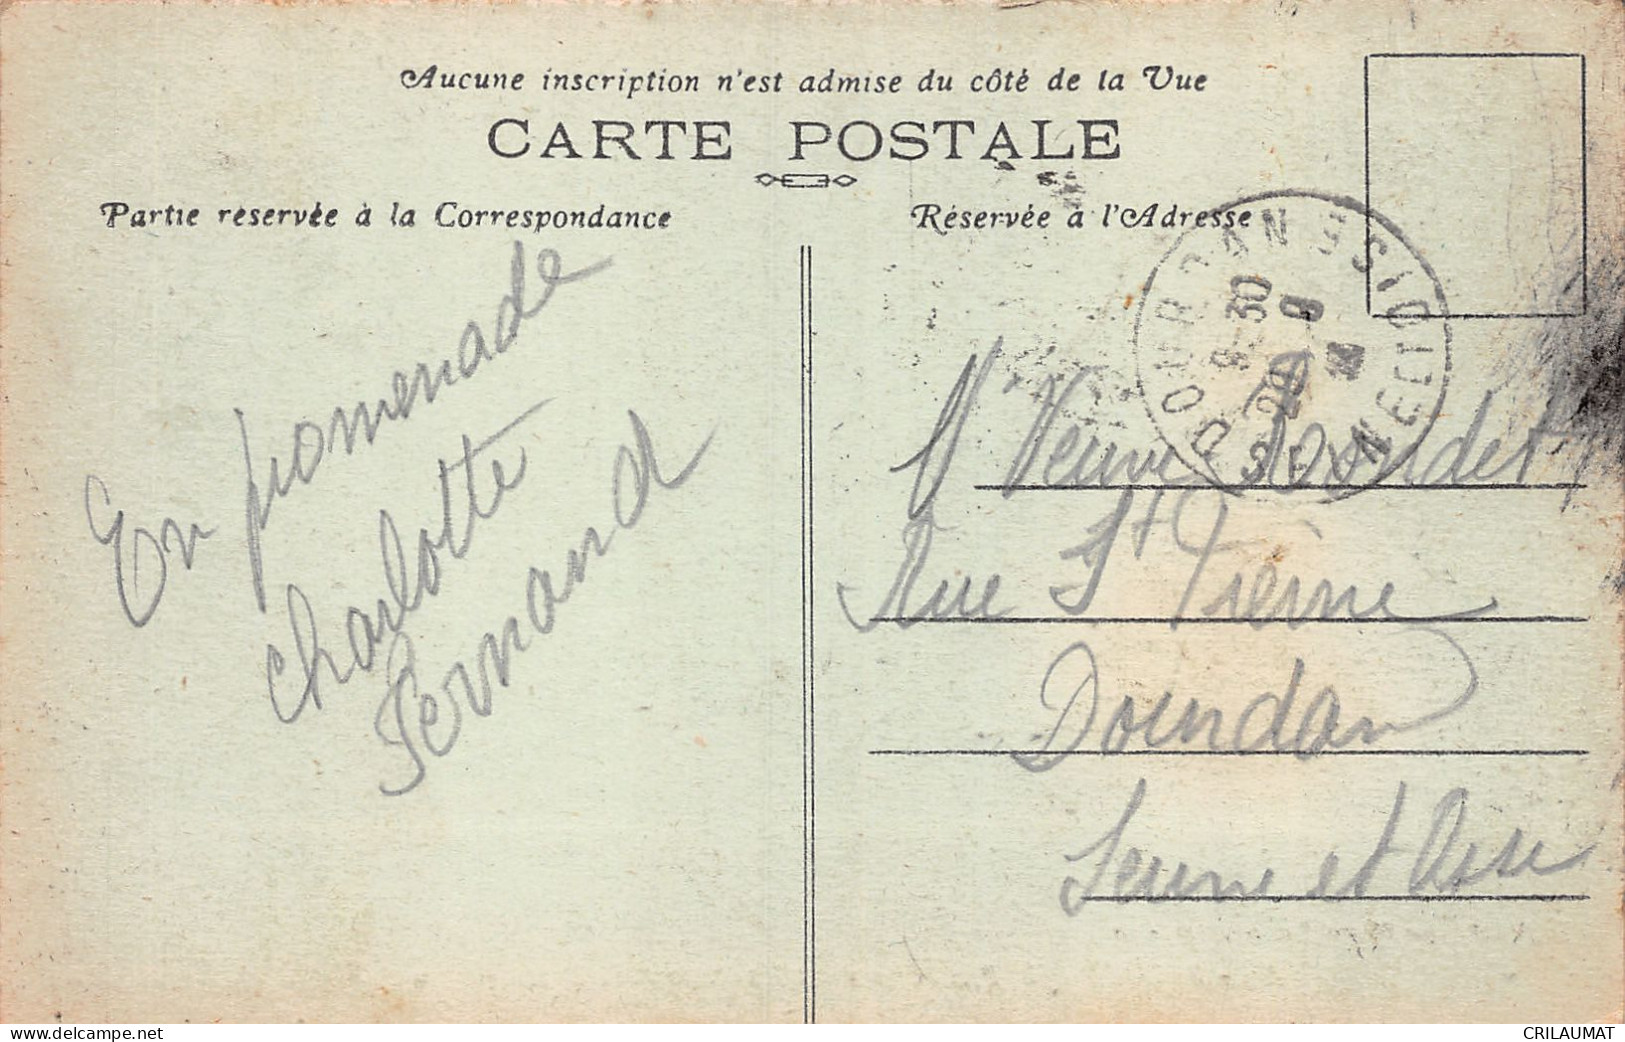 Aucune inscription n'est admise du côté de la Vue
CARTE POSTALE
Partie réservée à la Correspondance
Réservée à l'Adresse
En promenade
Charlotte
Fernand
DOURDAN
9-30
29
SEINE ET O
Veuve
Rue St
Dourdan
Seine et Oise
www.delcampe.net
CRILAUMAT